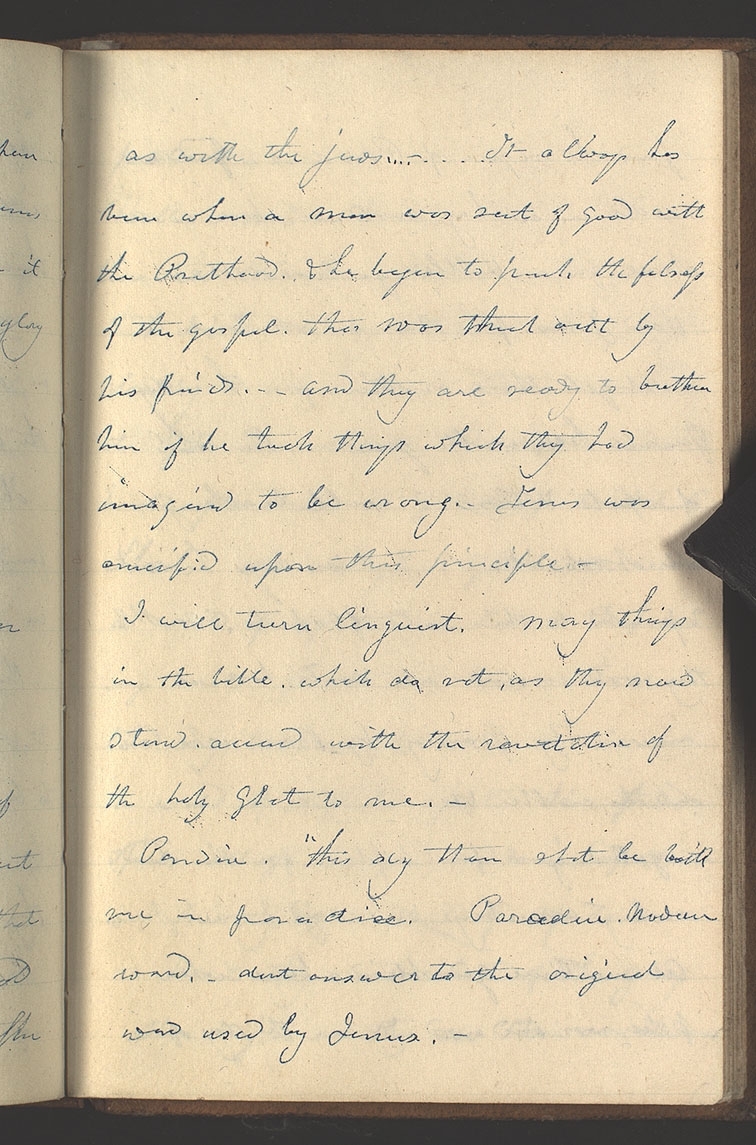 as with the jews..... It always has
been when a man was sent of God with
the Priesthood. & he began to preach the fulness
of the gospel. that was thrust out by
his friends. -- and they are ready to butcher
him if he teach things which they had
imagined to be wrong. - Jesus was
crucified upon this principle -
I will turn linguist. Many things
in the bible. which do not, as they now
stand. accord with the revelation of
the holy Ghost to me. -
Paradise. "this day thou shalt be with
me in paradise. Paradise. Modern
word. - dont answer to the original
word used by Jesus. -
hen
it
glory
of
that